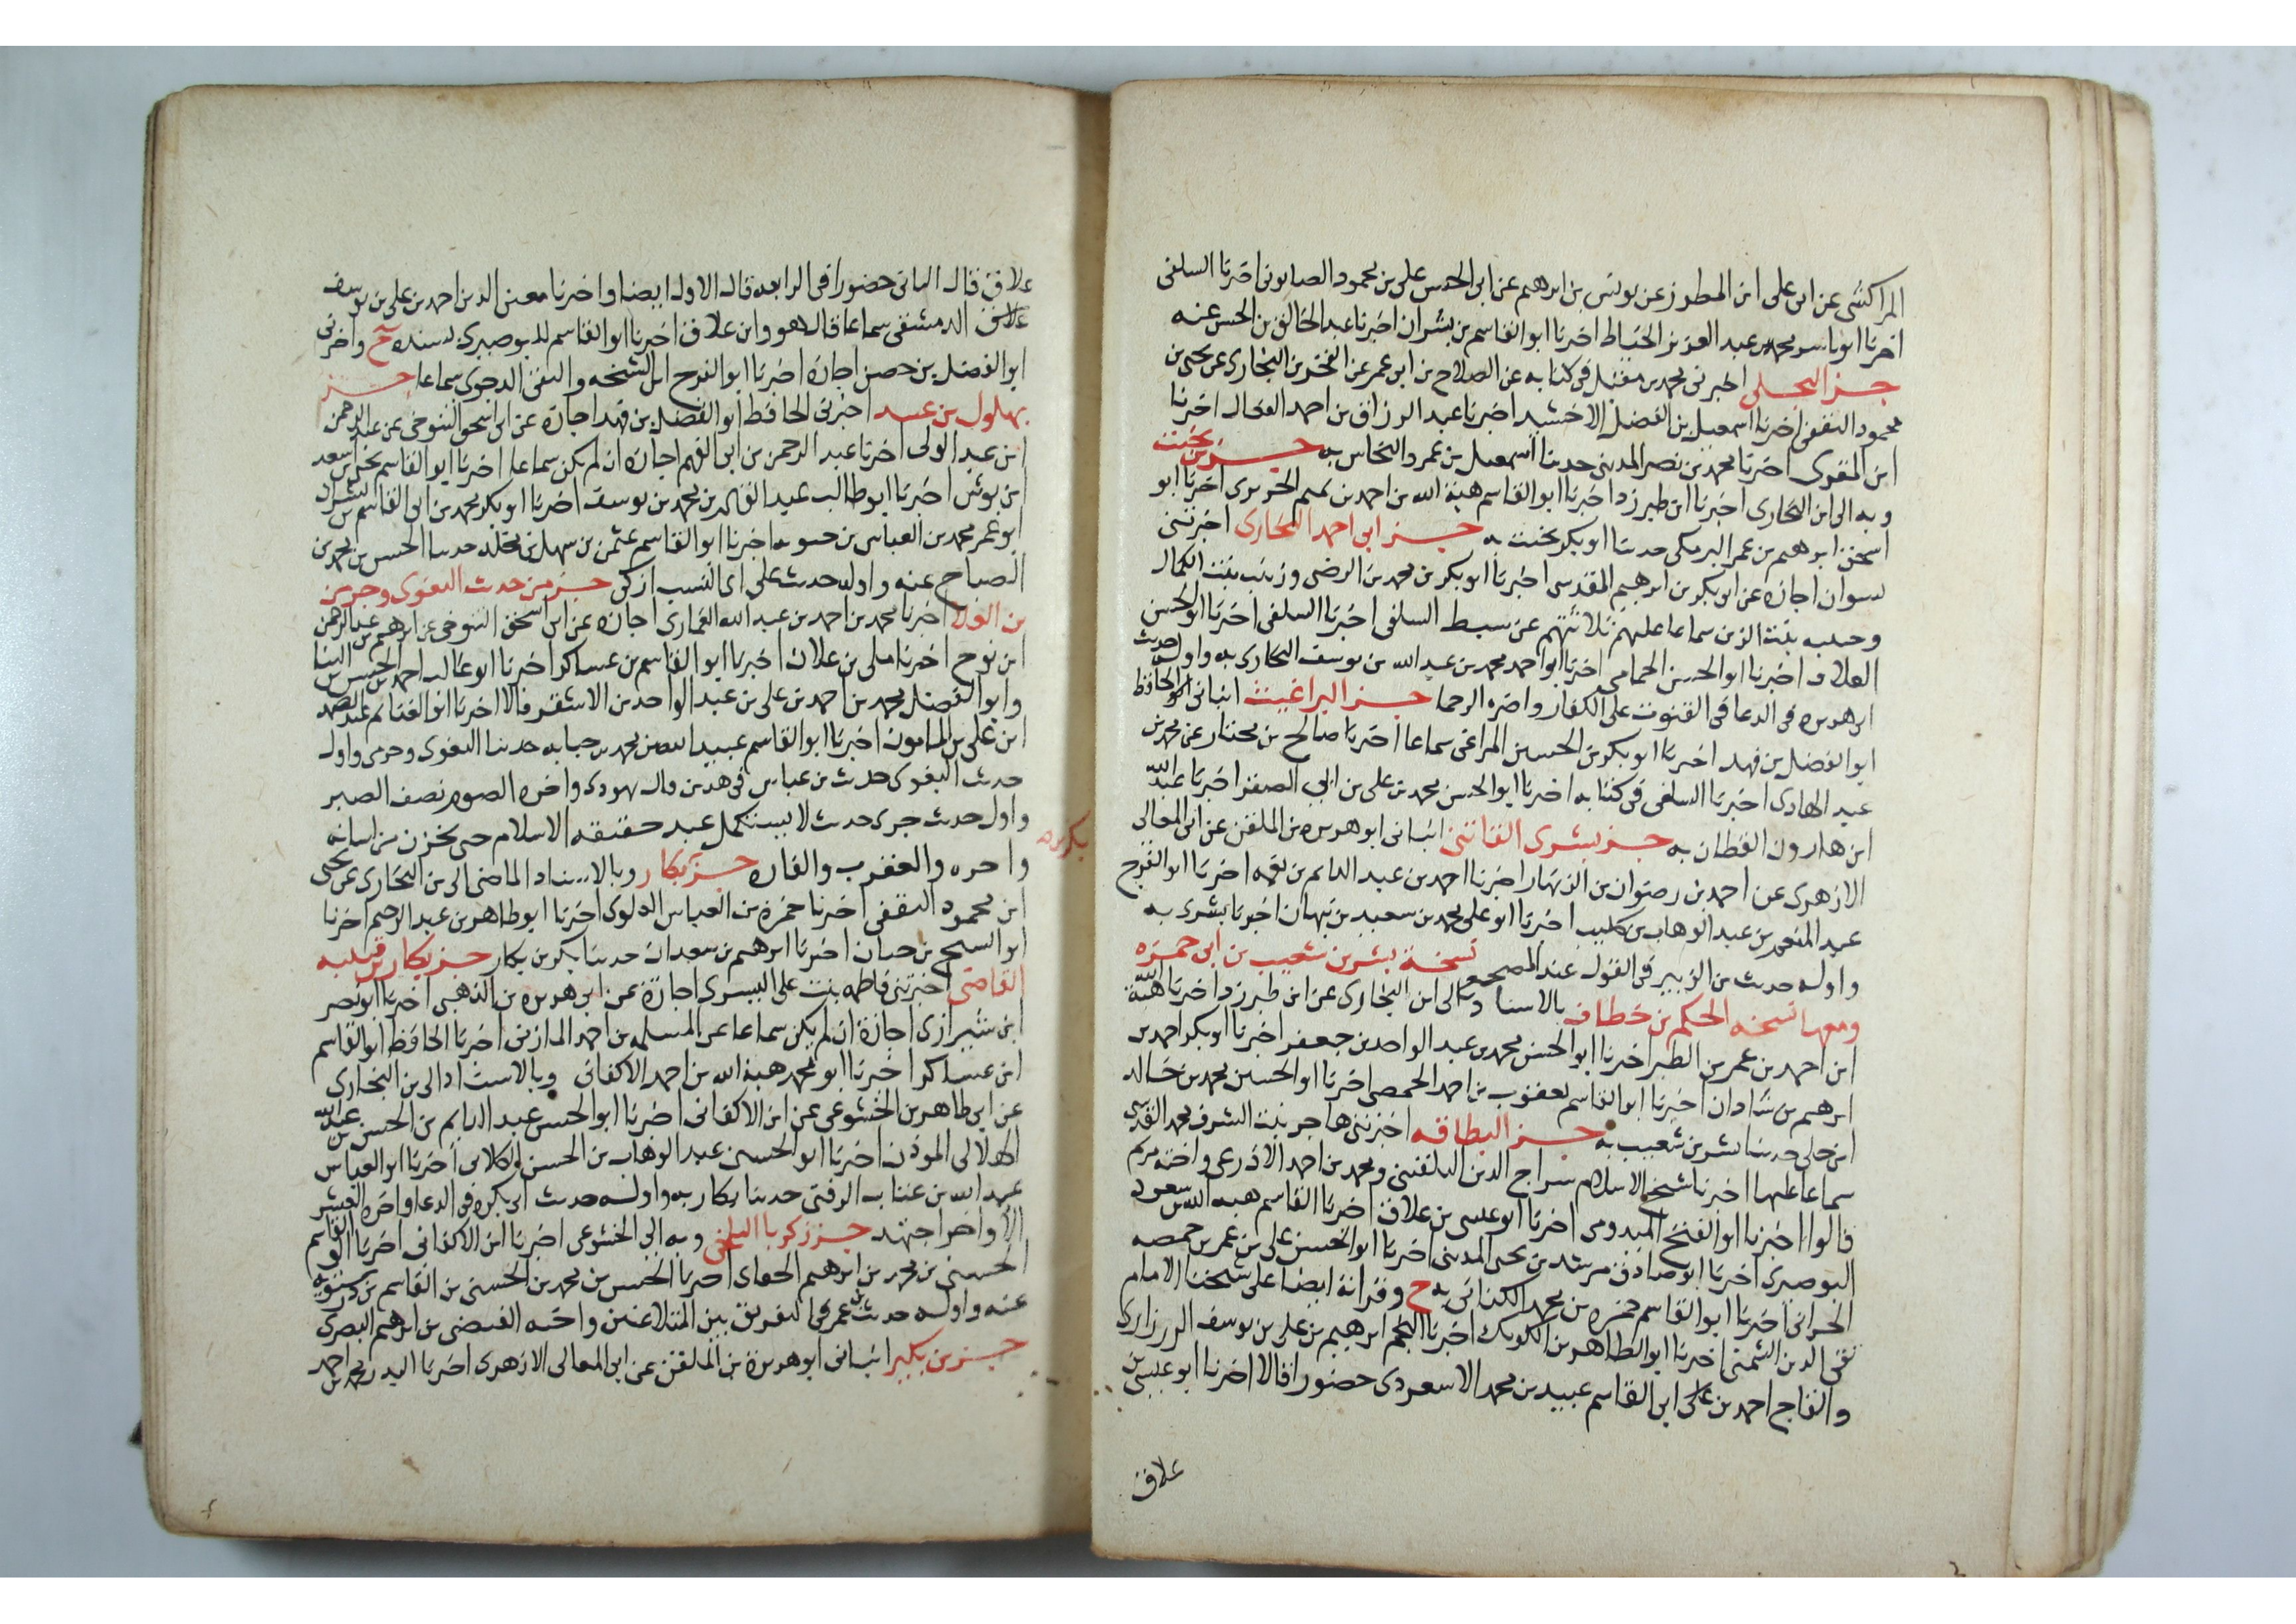 المراكشى عن ابن على ابن المطرز عن يونس بن ابرهيم عن ابى الحسن على بن محمود الصابونى اخبرنا السلفى
اخبرنا ابو ياسر محمد بن عبد العزيز الخياط اخبرنا ابو القاسم بن بشران اخبرنا عبد الخالق بن الحسن عنه
جز البجلى اخبرنى محمد بن مقبل فى كتابه عن الصلاح بن ابى عمر عن الفخر بن البخارى عن يحيى بن
محمود الثقفى اخبرنا اسمعيل بن الفضل الاخشيد اخبرنا عبد الرزاق بن احمد اخبرنا
ابن المقرى اخبرنا محمد بن نصر المدينى حدثنا اسمعيل بن عمرو البجلى به جز بن بخيت
وبه الى ابن البخارى اخبرنا ابن طبرزد اخبرنا ابو القاسم هبة الله بن احمد بن الحريرى اخبرنا ابو
اسحق ابرهيم بن عمر البرمكى حدثنا ابو بكر بخيت به جز ابى احمد البخارى اخبرتنى
نسوان اجازة عن ابى بكر بن ابرهيم المقدسى اخبرنا ابو بكر بن محمد بن الرضى وزينب بنت الكمال
وحبيبه بنت الزين سماعا عليهم ثلاثتهم عن سبط السلفى اخبرنا السلفى اخبرنا ابو الحسن
العلاف اخبرنا ابو الحسن الحمامى اخبرنا ابو احمد محمد بن عبد الله بن يوسف البخارى به واوله حديث
ابى هريره فى الدعا فى القنوت على الكفار واخره الرحما جز البراغيث انبانى الحافظ
ابو الفضل بن فهد اخبرنا ابو بكر بن الحسين المراغى سماعا اخبرنا صالح بن مختار عن محمد بن
عبد الهادى اخبرنا السلفى فى كتابه اخبرنا ابو الحسن محمد بن على بن ابى الصقر اخبرنا عبد الله
ابن هارون القطان به جز بشرى الفاتنى انبانى ابو هريره بن الملقن عن ابى المعالى
الازهرى عن احمد بن رضوان بن الزنهار اخبرنا احمد بن عبد الدايم بن نعمه اخبرنا ابو الفرج
عبد المنعم بن عبد الوهاب بن كليب اخبرنا ابو على محمد بن سعيد بن نبهان اخبرنا بشرى به
واوله حديث بن الزبير فى القول عند المضجع نسخة بشر بن شعيب بن ابى حمزه
ومعها نسخه الحكم بن خطاف بالاسناد الى ابن البخارى عن ابن طبرزد اخبرنا هبة الله
ابن احمد بن عمر بن الطبر اخبرنا ابو الحسن محمد بن عبد الواحد بن جعفر اخبرنا ابو بكر احمد بن
ابرهيم بن شاذان اخبرنا ابو القاسم يعقوب بن احمد الحمصى اخبرنا ابو الحسين محمد بن خالد
ابن خلى حدثنا بشر بن شعيب به جز البطاقه اخبرتنى هاجر بنت الشرف محمد القدسى
سماعا عليها اخبرنا شيخ الاسلام سراج الدين البلقينى ومحمد بن احمد الاذرعى واخته مريم
قالوا اخبرنا ابو الفتح الميدومى اخبرنا ابو عيسى بن علاق اخبرنا القاسم هبة الله بن سعود
البوصيرى اخبرنا ابو صادق مرشد بن يحيى المدينى اخبرنا ابو الحسن على بن عمر بن حمصه
الحرانى اخبرنا ابو القاسم حمزه بن محمد الكنانى به ح وقراته ايضا على شيخنا الامام
تقى الدين الشمنى اخبرنا ابو الطاهر بن الكويك اخبرنا النجم ابرهيم بن على بن يوسف الرزازى
والتاج احمد بن على ابن القاسم عبيد بن محمد الاسعردى حضورا قالا اخبرنا ابو عيسى بن
علاق
علاق قال الثانى حضورا فى الرابعه قال الاول ايضا واخبرنا معين الدين احمد بن على بن يوسف
الدمشقى سماعا قال هو وابن علاق اخبرنا ابو القاسم البوصيرى بسنده ح واخبرنى
ابو الفضل بن حصن اجازة اخبرنا ابو الفرج ابن الشيخه والتقى الدجوى سماعا جز
بهلول بن عبيد اخبرنى الحافظ ابو الفضل بن فهد اجازة عن ابى اسحق التنوخى عن عبد الرحمن
ابن عبد الولى اخبرنا عبد الرحمن بن ابى الفهم اجازة ان لم يكن سماعا اخبرنا ابو القاسم يحيى بن اسعد
ابن بوش اخبرنا ابو طالب عبد القادر بن محمد بن يوسف اخبرنا ابو بكر محمد بن ابى القاسم بن بشران
ابو عمر محمد بن العباس بن حيويه اخبرنا ابو القاسم عثمن بن سهل بن مخلد حدثنا الحسن بن محمد بن
الصباح عنه واوله حديث على اى الكسب ازكى جز من حديث البغوى وحرمى
بن العلا اخبرنا محمد بن احمد بن عبد الله القمارى اجازة عن ابى اسحق التنوخى عن ابرهيم بن عبد الرحمن
ابن نوح اخبرنا مكى بن علان اخبرنا ابو القاسم بن عساكر اخبرنا ابو غالب احمد بن الحسن بن البنا
وابو الفضل محمد بن احمد بن على بن عبد الواحد بن الاشقر قالا اخبرنا ابو الغنايم عبد الصمد
ابن على بن المامون اخبرنا ابو القاسم عبيد الله بن محمد بن حبابه حدثنا البغوى وحرمى واول
حديث البغوى حديث بن عباس فى هدين وال يهودى واخره الصوم نصف الصبر
واول حديث حرمى حديث لا يستكمل عبد حقيقه الاسلام حتى يخزن من لسانه
واخره والعقرب والفاره جز بكار وبالاسناد الماضى الى بن البخارى عن يحيى
ابن محمود الثقفى اخبرنا حمزة بن العباس العلوى اخبرنا ابو طاهر بن عبد الرحيم اخبرنا
ابو الشيخ بن حيان اخبرنا ابرهيم بن سعدان حدثنا بكر بن بكار جز بكار بن قتيبه
القاضى اخبرتنى فاطمه بنت على اليسيرى اجازة عن ابى هريره بن الذهبى اخبرنا ابو نصر
ابن شيرازى اجازة ان لم يكن سماعا عن المسلم بن احمد المازنى اخبرنا الحافظ ابو القاسم
ابن عساكر اخبرنا ابو محمد هبة الله بن احمد الاكفانى وبالاسناد الى بن البخارى
عن ابى طاهر بن الخشوعى عن ابن الاكفانى اخبرنا ابو الحسن عبد الدايم بن الحسن بن عبد الله
الهلالى الموذن اخبرنا ابو الحسين عبد الوهاب بن الحسن الكلابى اخبرنا ابو العباس
عبد الله بن عتاب الزفتى حدثنا بكار به واوله حديث ابى بكره فى الدعا واخره العشر
الاواخر اجتهد جز زكريا البلخى وبه الى الخشوعى اخبرنا ابن الاكفانى اخبرنا ابو القاسم
الحسين بن محمد بن ابرهيم الحناى اخبرنا الحسن بن محمد بن الحسين بن القاسم بن درستويه
عنه واوله حديث بن عمر فى التفريق بين المتلاعنين واخره الفيضى بن ابرهيم البصرى
جز بن بكير انبانى ابو هريرة بن الملقن عن ابى المعالى الازهرى اخبرنا البدر محمد بن احمد